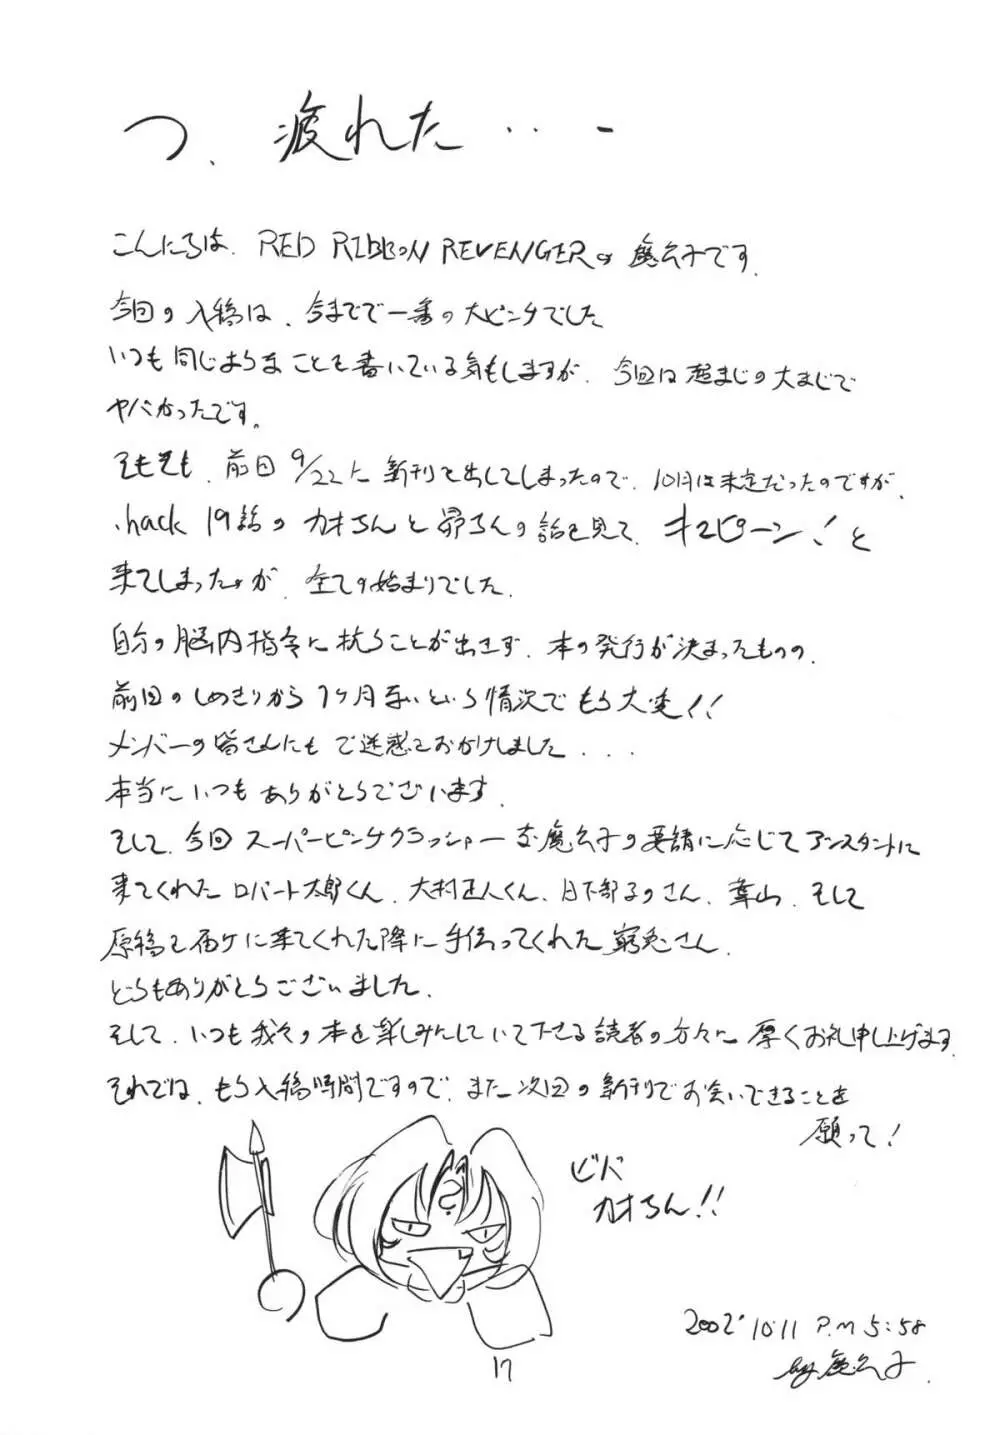 つ、疲れた・・・
こんにちは、RED RIBBON REVENGERの魔公子です。
今回の入稿は、今までで一番の大ピンチでした
いつも同じようなことを書いている気もしますが、今回は超まじの大まじで
ヤバかったです。
そもそも、前回9/22に新刊を出してしまったので、10月は未定だったのですが、
.hack 19話のカオちんと昴ちんの話を見て、キュピーン!と
来てしまったのが、全ての始まりでした。
自分の脳内指令に抗うことが出きず、本の発行が決まったものの、
前回のしめきりから1ヶ月無いという情況でもう大変!!
メンバーの皆さんにもご迷惑をおかけしました...
本当にいつもありがとうございます。
そして、今回スーパーピンチクラッシャーな魔公子の要請に応じてアシスタントに
来てくれたロバート太郎くん、大村正人くん、日下部るのさん、葉山、そして
原稿を届けに来てくれた際に手伝ってくれた窮兎さん、
どうもありがとうございました。
そして、いつも我々の本を楽しみにしていて下さる読者の方々に厚くお礼申し上げます。
それでは、もう入稿時間ですので、また次回の新刊でお会いできることを
願って!
ビバ
カオちん!!
2002' 10.11 P.M 5:58
by 魔公子.
17